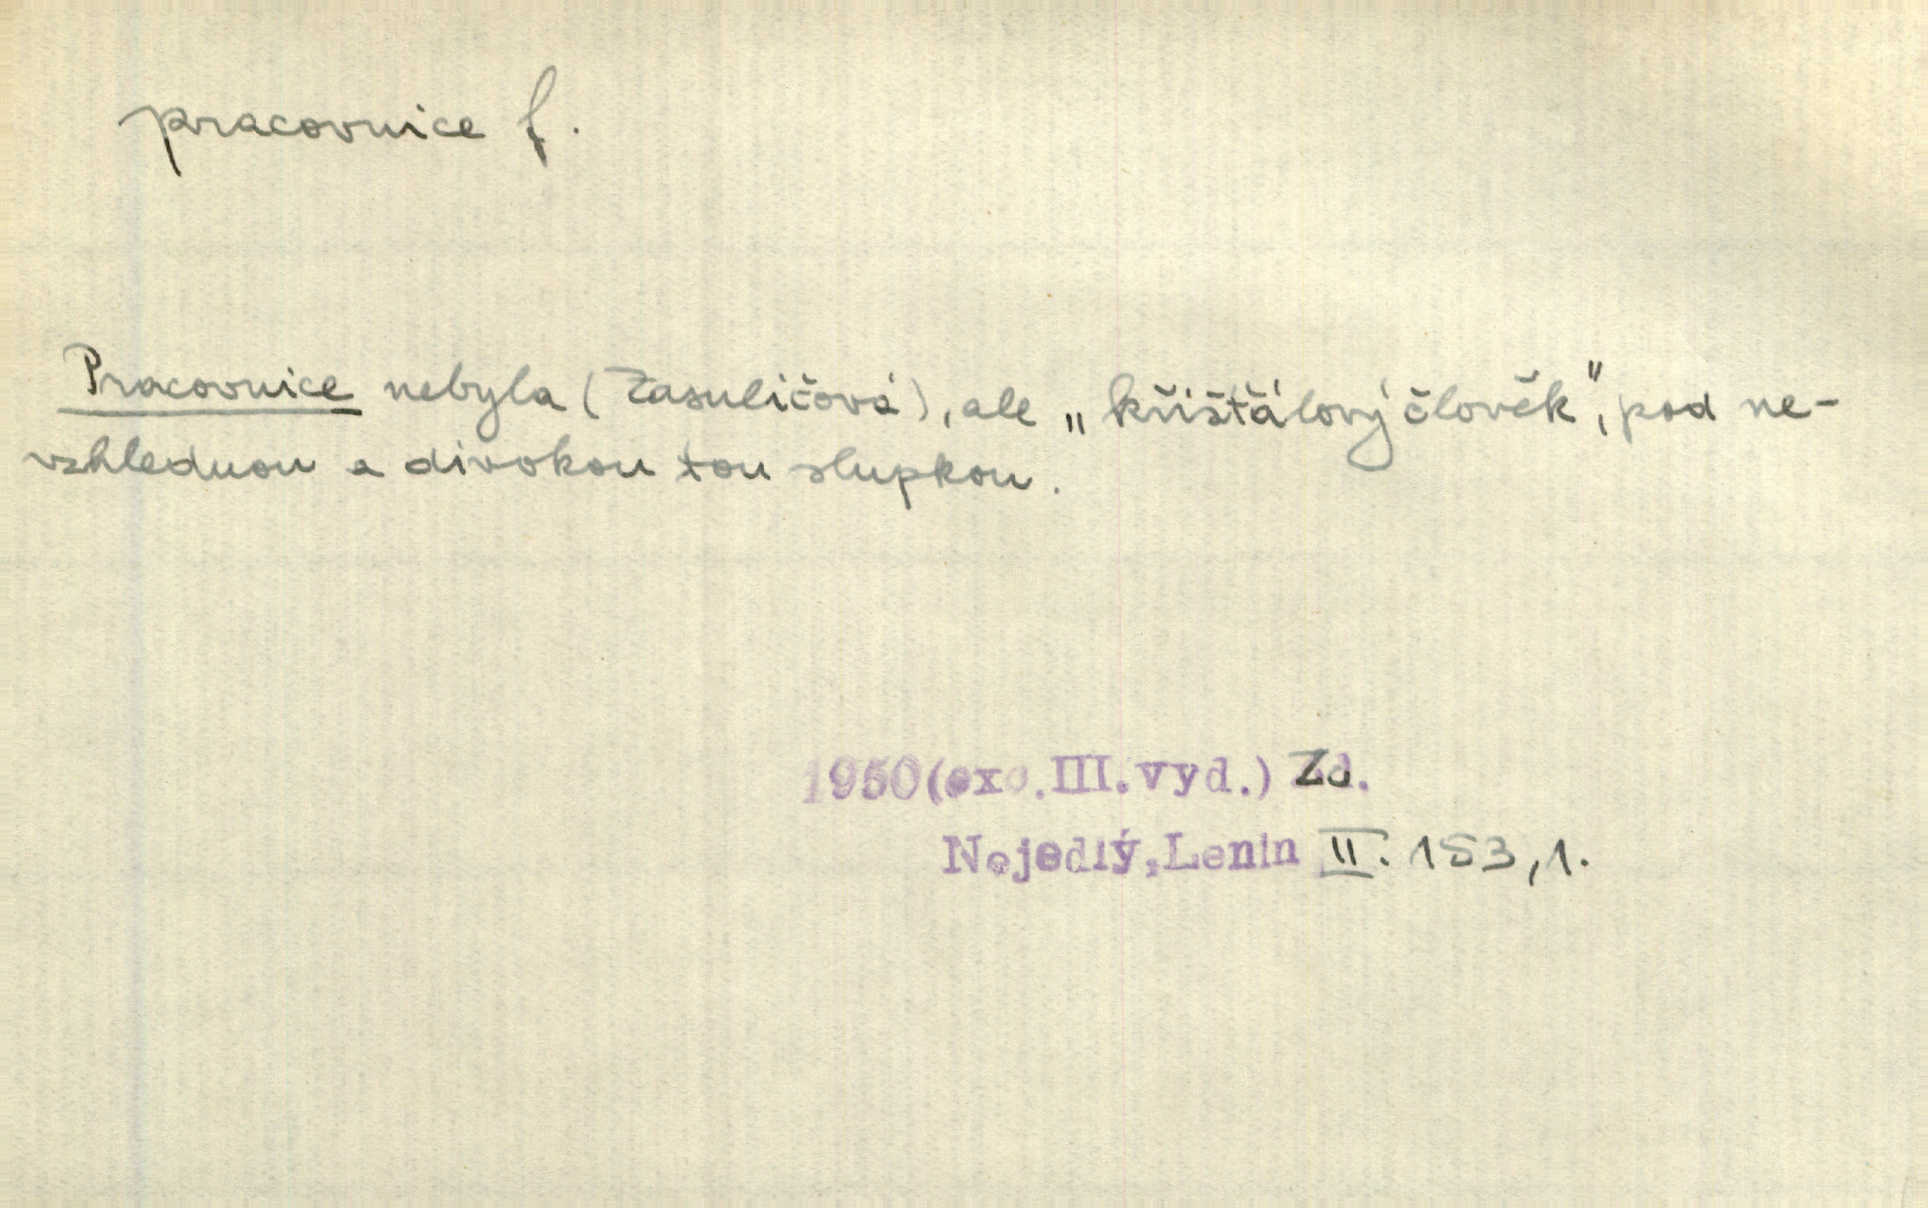 pracovnice f.
Pracovnice nebyla (Zasuličová), ale „křišťálový člověk", pod ne-
vzhlednou a divokou tou slupkou.
1950(exc.III.vyd.) Zd.
Nejedlý,Lenin II. 153,1.